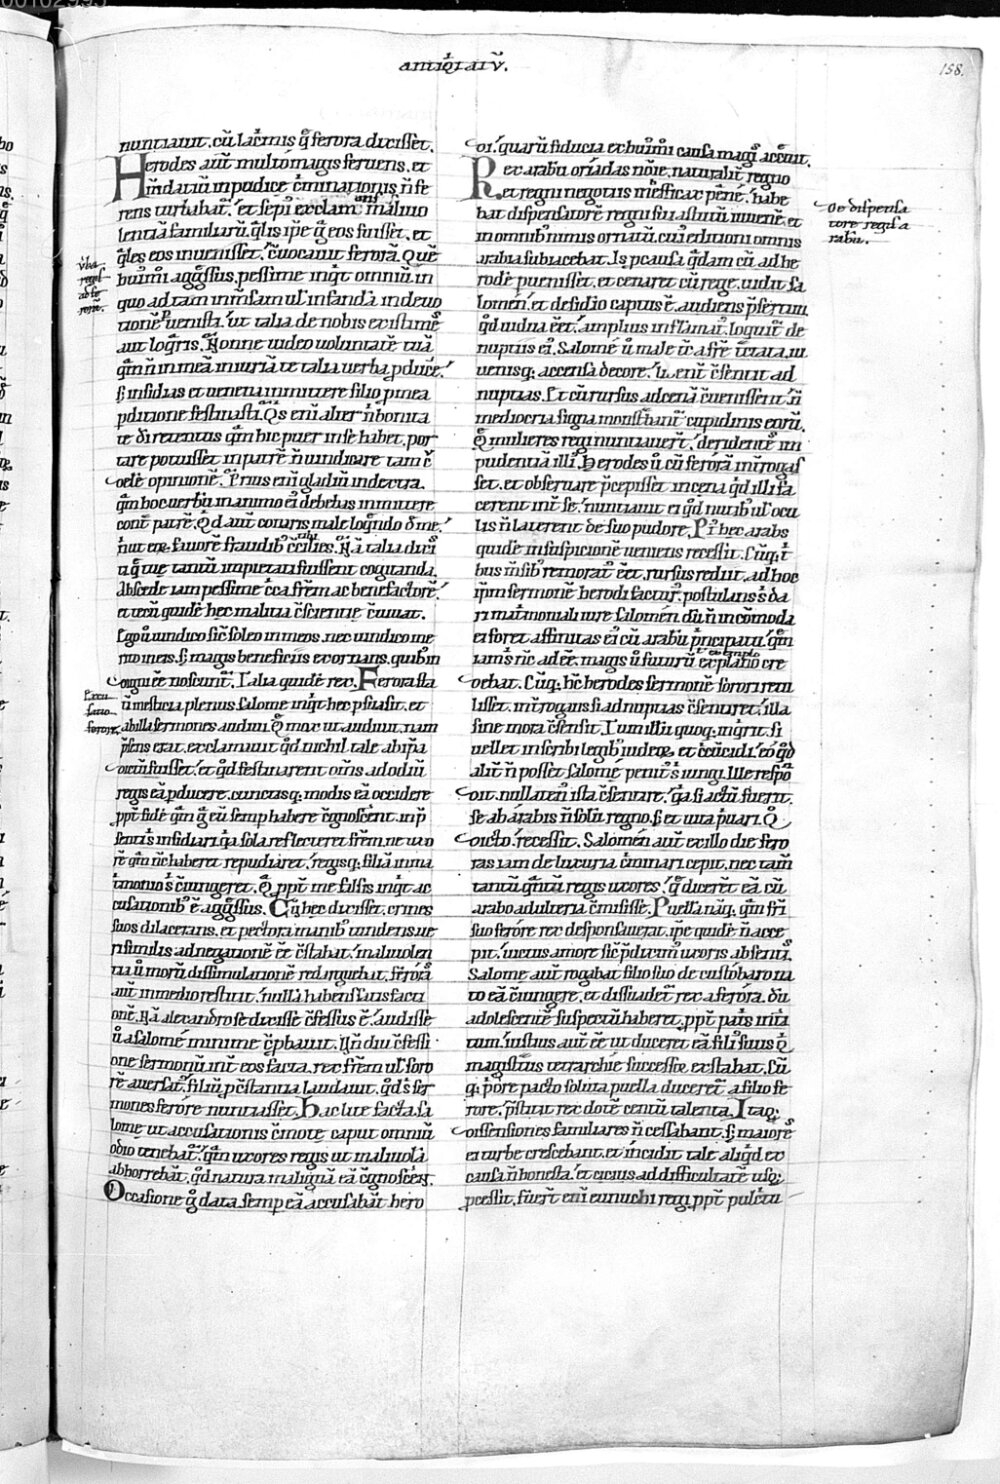 antiqitatū.
158.
nuntiauit. cū lac̄mis q̄ ferora dixisset.
Herodes aūt multo magis feruens. et
rens turbabat̄. et sepi exclam̄ malıuo
lentiā familiarū. q̄lis ip̄e q̄ eos fuisset. et
q̄les eos inuenisset. c̄uocauit ferorā. Quē
buim̄i agḡssus. pessime inq̇t omniū in
tionē uenisti. ut talia de nobis existimēs
aut loq̄ris. Nonne uideo uoluntatē tuā
q̄m n̄ in meā iniuriā te talia uerba p̄ducē.
s; insidias et uenena inmittere filio p̄ mea
p̄ditione festinasti. Q̇s eni aliter n̄ bonita
te diretentus q̄m hic puer in se habet. por
tare potuisset in patrē n̄ uindicare tam c̄
odelē opinionē. P̄rius eni gladiū indextra.
q̄m hoc uerbū in animo ei debebas inmittere
n̄ q̇ue tantū impietati fuissent cogitanda.
Abscede iam pessime c̄tra frēm ac benefactorē.
Ego ū uindico sic̄ soleo in meos. nec uindico me
rito meis. s; magis beneficiis exornans. quib; in
digni eē noscunt̄. Talia quidē rex. Ferora sta
ū mesticia plenus salome inq̇t hec p̄suasit. et
ab illa sermones audiui. Q̄ mox ut audiuit. nam
p̄sens erat. exclamauit q̇d nichil tale ab ip̄a
dictū fuisset. et q̇d festinarent om̄s ad odiū
regis eā p̄ducere. cunctisq; modis eā occidere
ppt̄ fidē q̄m q̄ eū semp̄ habere c̄gnoscent. in p̄
rē q̄m n̄c haberet repudiaret. regisq; filiā in ma
t̄monio s̄ c̄iungeret. Q̄ ppt̄ me falsis inq̇t ac
cusationib; ē agḡssus. Cū hec dixisset. crines
suos dilacerans. et pectora manib; tundens. ue
risimilis ad negationē eē c̄stabat. maliuolen
tiā ū morū dissimulationē redarguebat. Ferorā
aūt in medio restitit. nullā habens satisfacti
onē. Nā alexandro se dixisse c̄fessus ē. audisse
ū a salomē minime c̄p̄bauit. Ḣn diu c̄fessi
one sermonū int̄ eos facta. rex frēm ul̄ soro
rē auersat̄. filiū p̄c̄stantia laudauit. q̇d s̄ ser
mones ferorē nuntiasset. Hac lite facta sa
lome ut accusationis c̄mote caput omniū
odio tenebat̄. q̄m uxores regis ut maliuolā
abhorrebāt. q̇d natura malignā eā c̄gnoscer̄.
Occasione q̄ data semp̄ eā accusabāt hero
di. quarū fiducia et huim̄i causa magis accēdit.
Rex arabū oriadas nōie. naturalit̄ regno
et regni negotiis inefficax pēne. habe
bat dispensatorē regni sui astutū iuuenē. et
in omnib; nimis ornatū. cui; editioni omnis
arabia subiacebat. Is p̄ causa q̇dam cū ad he
rodē p̄uenisset. et cenaret cū rege. uidit sa
lomēn. et desidio captus ē. audiens p̄sertim
q̇d uidua eēt. amplius inflamat̄. loquit̄ de
nuptiis ei. Salomē ū male tc̄ a frē t̄ctata. iu
nuptias. Et cū rursus ad cenā c̄uenissent. n̄
mediocria signa monst̄bant̄ cupidinis eorū.
Q̄ mulieres regi nuntiauer̄t. deridentes im
pudentiā illi. Herodes ū cū ferorā int̄rogas
set. et obseruare p̄cepisset in cena q̇d illi fa
cerent int̄ se. nuntiauit ei q̇d nutib; ul̄ ocu
lis n̄ laterent de suo pudore. P̄ hec arabs
quidē in suspicionē ueniens recessit. Cūq; t̄
bus m̄sib; remorat̄ eēt. rursus rediit. ad hoc
ip̄m sermonē herodi factur̄. postulans s̄ da
ri mat̄moniali iure salomēn. dū n̄ incōmoda
ei foret affinitas ei cū arabū p̄ncipatu. q̄m
debat. Cūq; hc̄ herodes sermonē sorori retu
lisset. int̄rogans si ad nuptias c̄sentiret. illa
sine mora c̄sensit. Tum illū quoq; inq̇rit. si
uellet inscribi legib; iudeoꝝ. et c̄c̄ucidi. eo q̇d
alit̄ n̄ posset salomē penit; s̄ iungi. Ille respō
dit. nullaten; ista c̄sentire. q̇a si actū fuerit.
se ab arabis n̄ solū regno. s; et uita p̄uari. Q̄
dicto. recessit. Salomēn aūt ex illo die fero
ras iam de luxuria c̄minari cepit. nec tam̄
tantū q̄ntū regis uxores. q̄ dicerēt eā cū
arabo adulteria c̄misisse. Puellā naq;. q̄m fri
suo ferore rex desponsauerat. ip̄e quidē n̄ acce
pit. uictus amore sic̄ p̄diximꝰ uxoris absenti.
Salome aūt rogabat filio suo de custobaro na
to eā c̄iungere. et dissuadet̄ rex a ferora. dū
adolescentē suspectū haberet. ppt̄ patis int̄i
tum. iustius aūt eē ut duceret eā fili suus q̇
magisti; tetrarchie successor extabat. Cū
q; p̄ore pacto soluta puella duceret̄ a filio fe
rore. p̄stitit rex dotē centū talenta. Itaq;
offensiones familiares n̄ cessabant. s; maiorē
ei turbe crescebant. et incidit tale aliq̇d ex
causa n̄ honesta. et citius ad difficultatē usq;
p̄cessit. fuer̄t eni eunuchi regi. ppt̄ pulc̄tu
De dispensa
tore regis a
rabū.